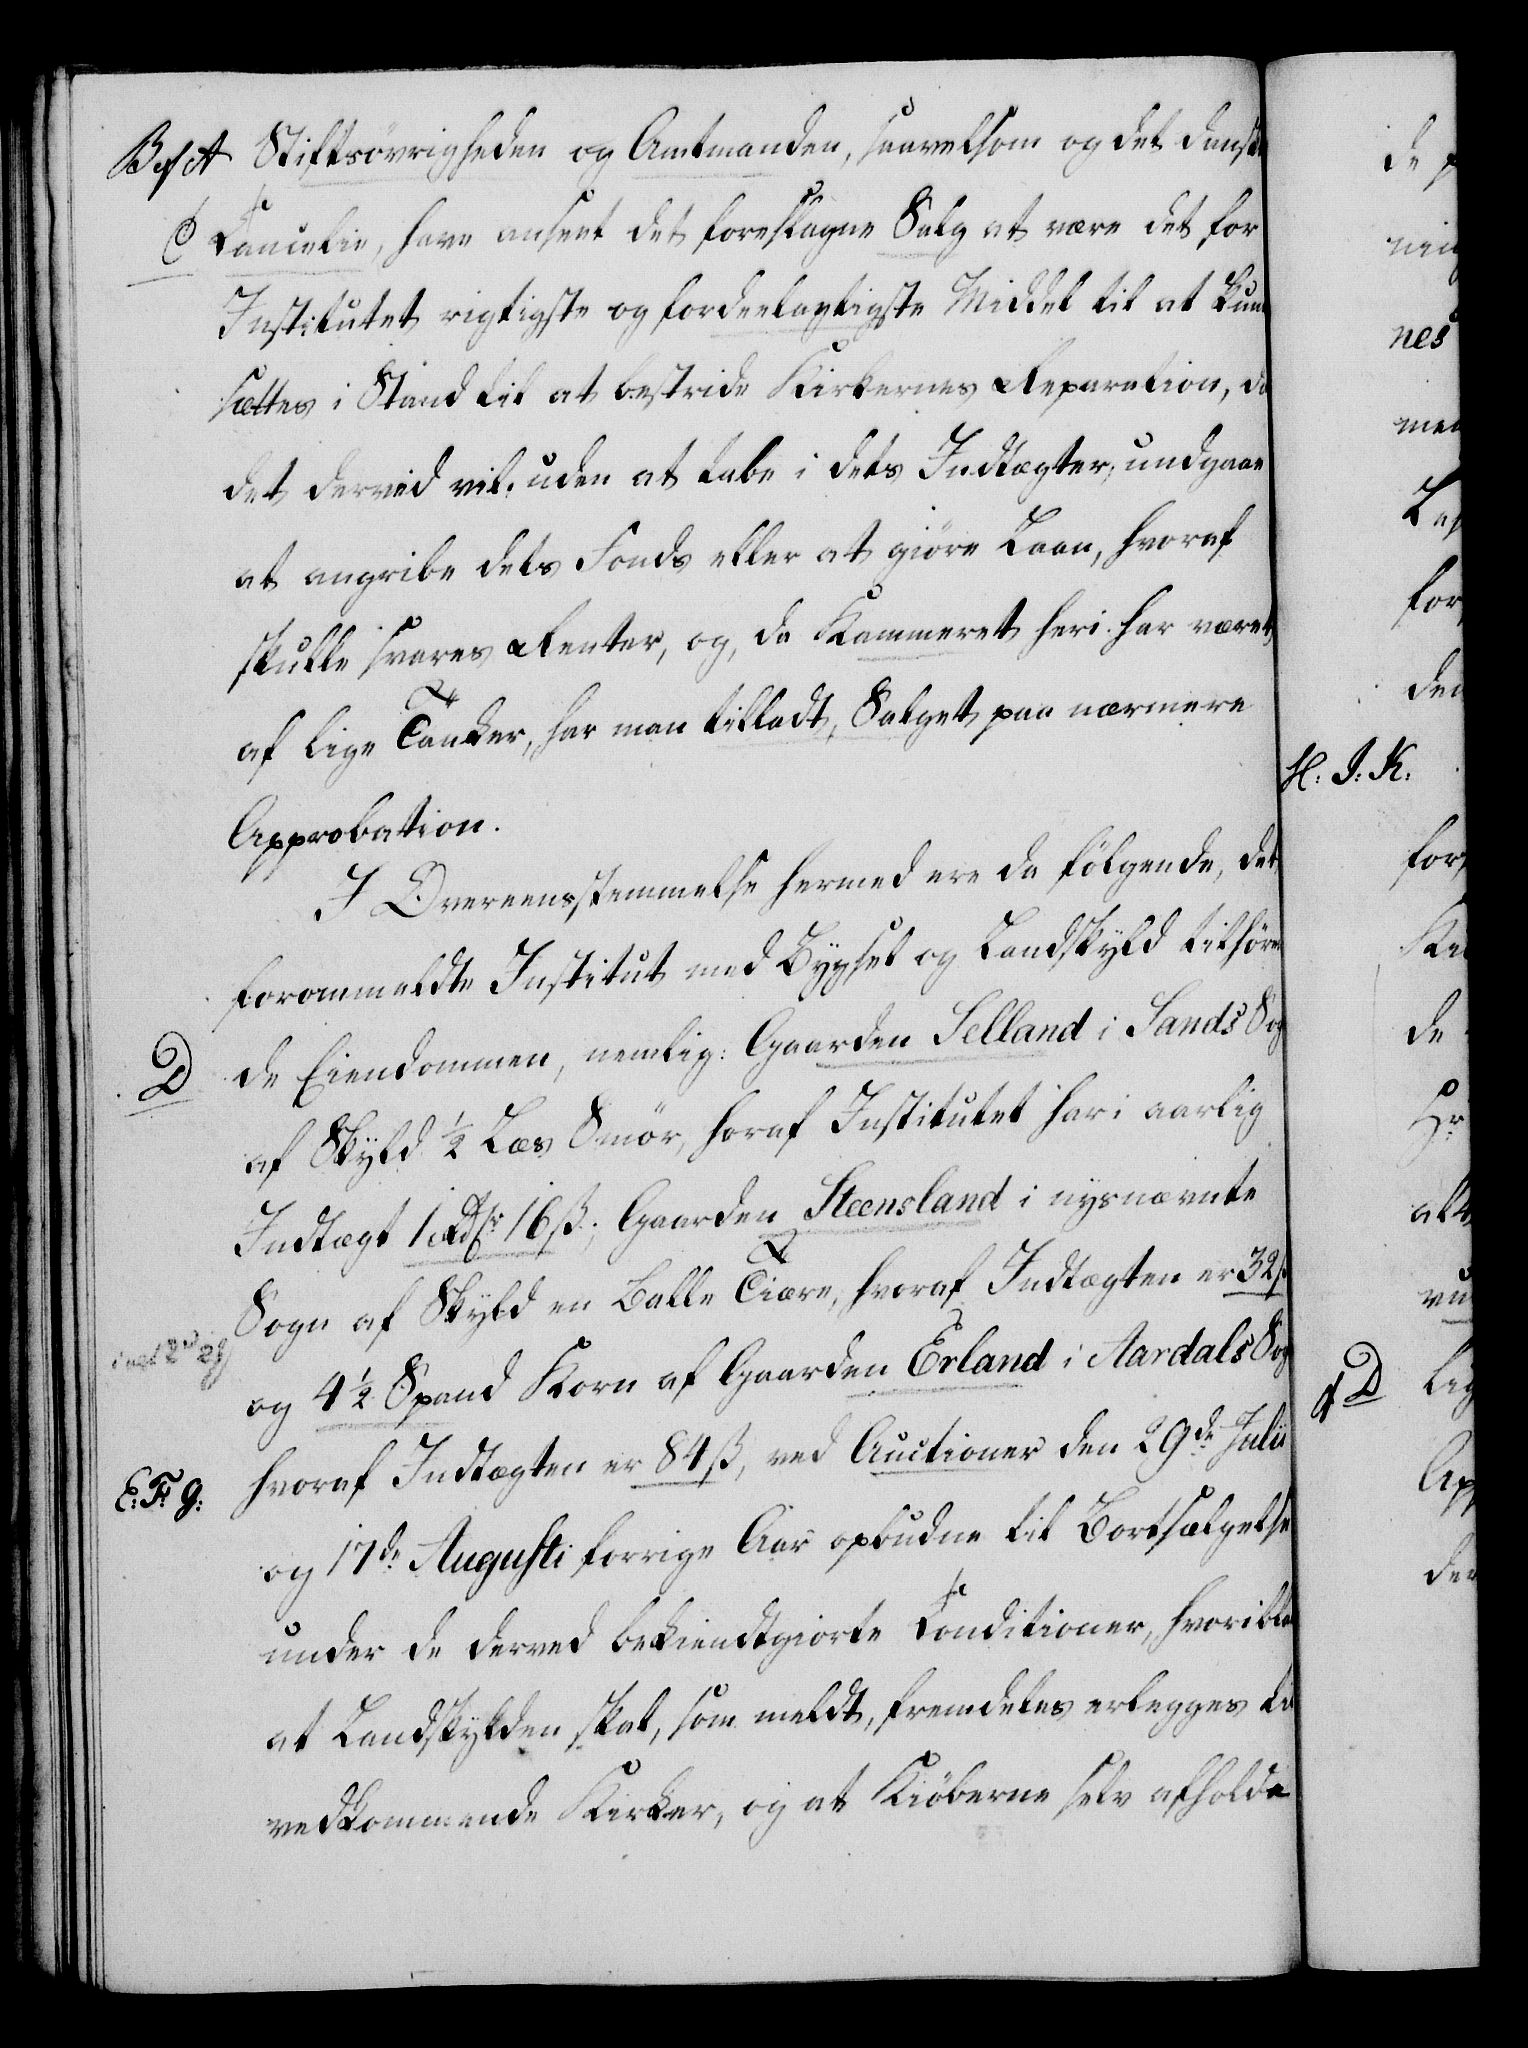 B of A Stiftsøvrigheden og Amtmanden, saavelsom og det danske
C Cancelie, have anseet det foreslagne Salg at være det for
Institutet rigtigste og fordeelagtigste Middel til at kunne
sættes i Stand til at bestride Kirkernes Reparation, da
det derved vil, uden at tabe i dets Indtægter, undgaae
at angribe dets Fonds eller at giöre Laan, hvoraf
skulle svares Renter, og, da Kammeret heri har været
af lige Tanker, har man tilladt, Salget paa nærmere
Approbation.
I Overeensstemmelse hermed ere da følgende, det
forommeldte Institut med Bygsel og Landskyld tilhøren
D de Eiendommen, nemlig: Gaarden Selland i Sands Sogn
af Skyld ½ Løs Smör, horaf Institutet har i aarlig
Indtægt 1 Rdlr 16 ß; Gaarden Steensland i nysnævnte
Sogn af Skyld en Balle Tiære, hvoraf Indtægten er 32 ß
og 4½ Spand Korn af Gaarden Erland i Aardals Sogn
E: F: g: hvoraf Indtægten er 84 ß, ved Auctioner den 29de Julii
og 17de Augusti forrige Aar opbudne til Bortsælgelse
under de derved bekiendtgiorte Conditioner, hvoriblandt
at Landskylden skal, som meldt, fremdeles erlegges til
vedkommende Kirker, og at Kiöberne selv afholde
H: I: K:
nes
for
den
for
de
Hr
D